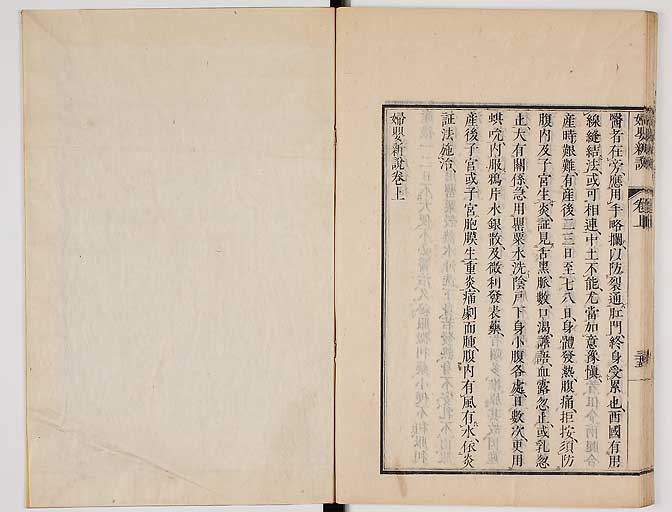 婦嬰新說
卷上
醫者在旁應用手略攔以防裂通肛門終身受累也西國有用
線縫結法或可相連中土不能尤當加意豫慎
產時艱難有產後二三日至七八日身體發熱腹痛拒按須防
腹內及子宮生炎証見舌黑脈數口渴譫語血露忽止或乳忽
止大有關係急用罌粟水洗陰戶下身小腹各處日數次更用
蜞吮內服鴉片水銀散及微利發表藥
產後子宮或子宮胞膜生重炎痛劇而腫腹內有風有水依炎
証法施治
婦嬰新說卷上